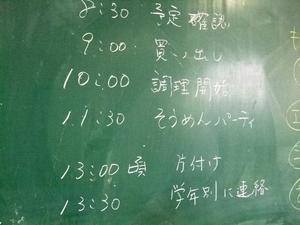 8:30 予定確認
9:00 買い出し
10:00 調理開始
11:30 そうめんパーティ
13:00頃 片付け
13:30 学年別に連絡